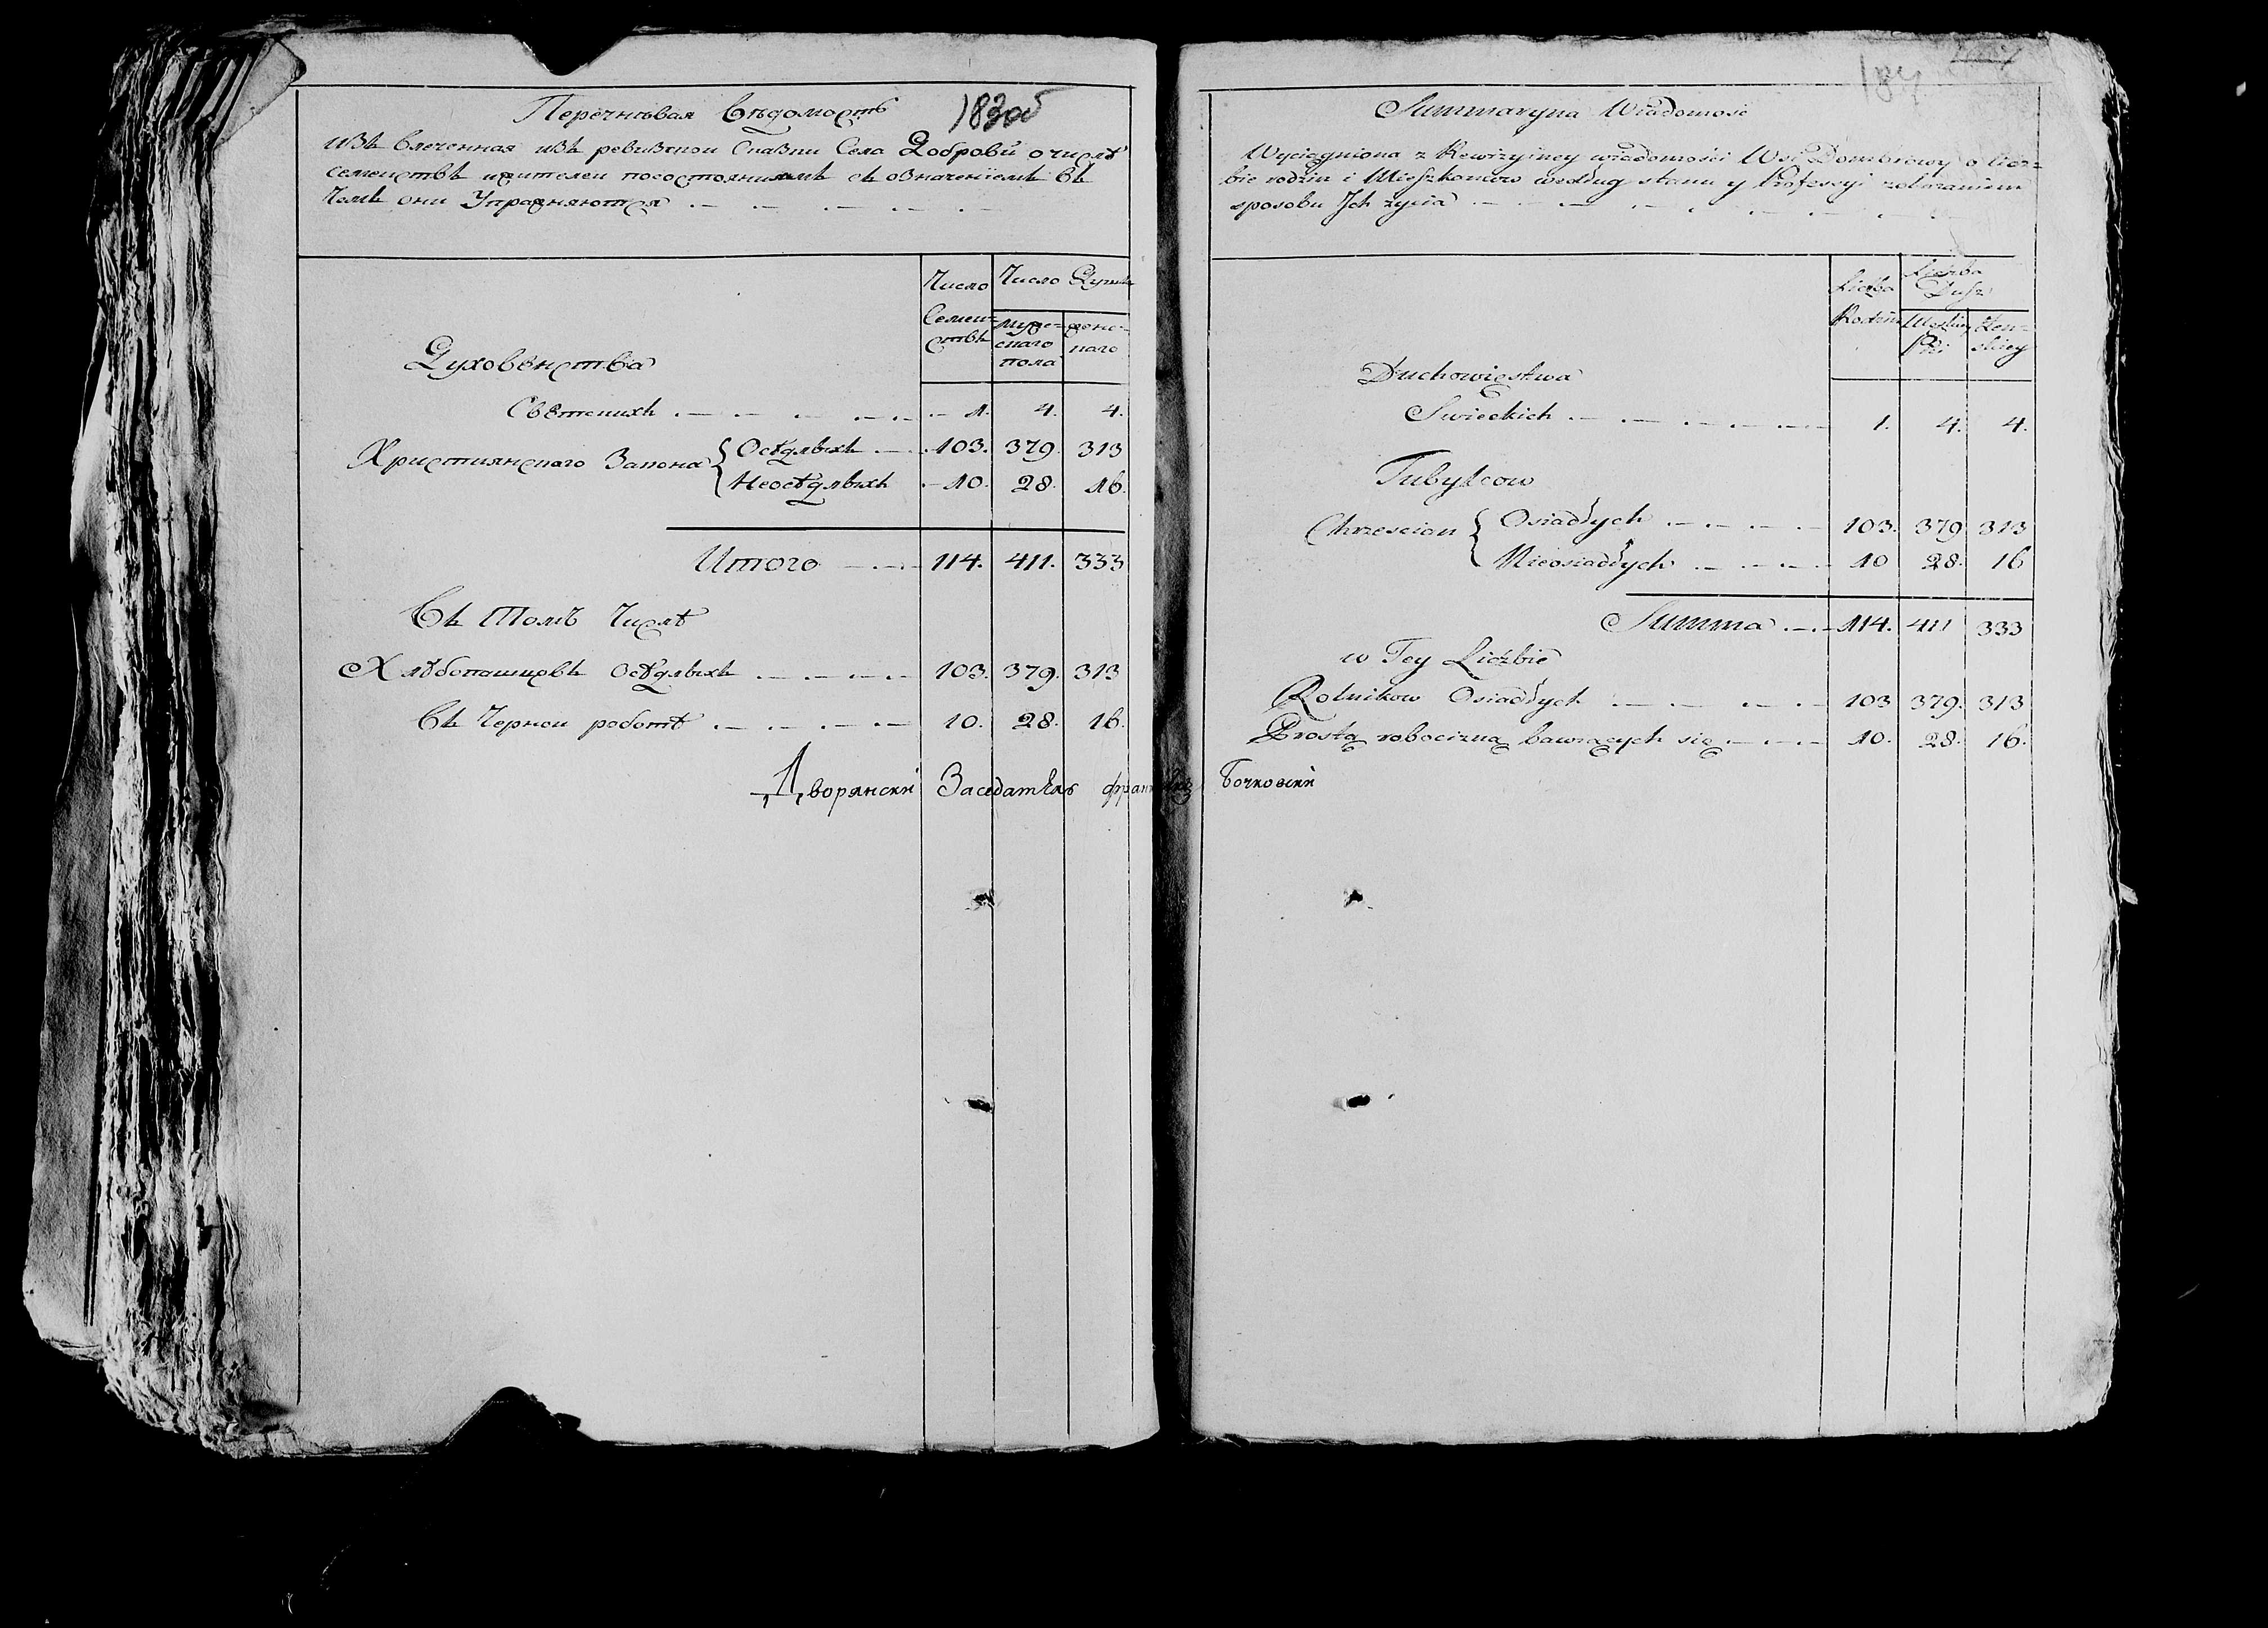 Перечнѣвая Вѣдомость
183об
изъ влеченная изъ ревизкой Сказки Села Домбровы о числѣ
семействъ и жителей по состояниямъ съ означениемъ въ
чемъ они Упражняются
Число Семействъ
Число Душъ
мужескаго пола
женскаго
Духовенства
Свѣтскихъ 1. 4. 4.
Християнского Закона { Осѣдлыхъ 103. 379. 313
Неосѣдлыхъ 10. 28. 16.
Итого 114. 411. 333
Въ Томъ Числѣ
Хлѣбопашцовъ Осѣдлыхъ 103. 379. 313
Въ Черной роботѣ 10. 28. 16.
Дворянский Заседатель Бочковский
184
Summaryna Wiadomosc
Wyciągniona z Rewizyiney wiadomości Wsi Dombrowy o licz-
bie rodzin i Mieszkancow według stanu y Professyi
sposobu Ich zycia
Liczba Rodzin
Liczba Dusz
Męskiey Płci
Żenskiey
Duchowięstwa
Swieckich 1. 4. 4.
Tubylcow
Chrzescian { Osiadłych 103. 379 313
Nieosiadłych 10 28. 16
Summa 114. 411 333
w Tey Liczbie
Rolnikow Osiadłych 103 379. 313
Prostą robocizną bawiących się 10. 28. 16.